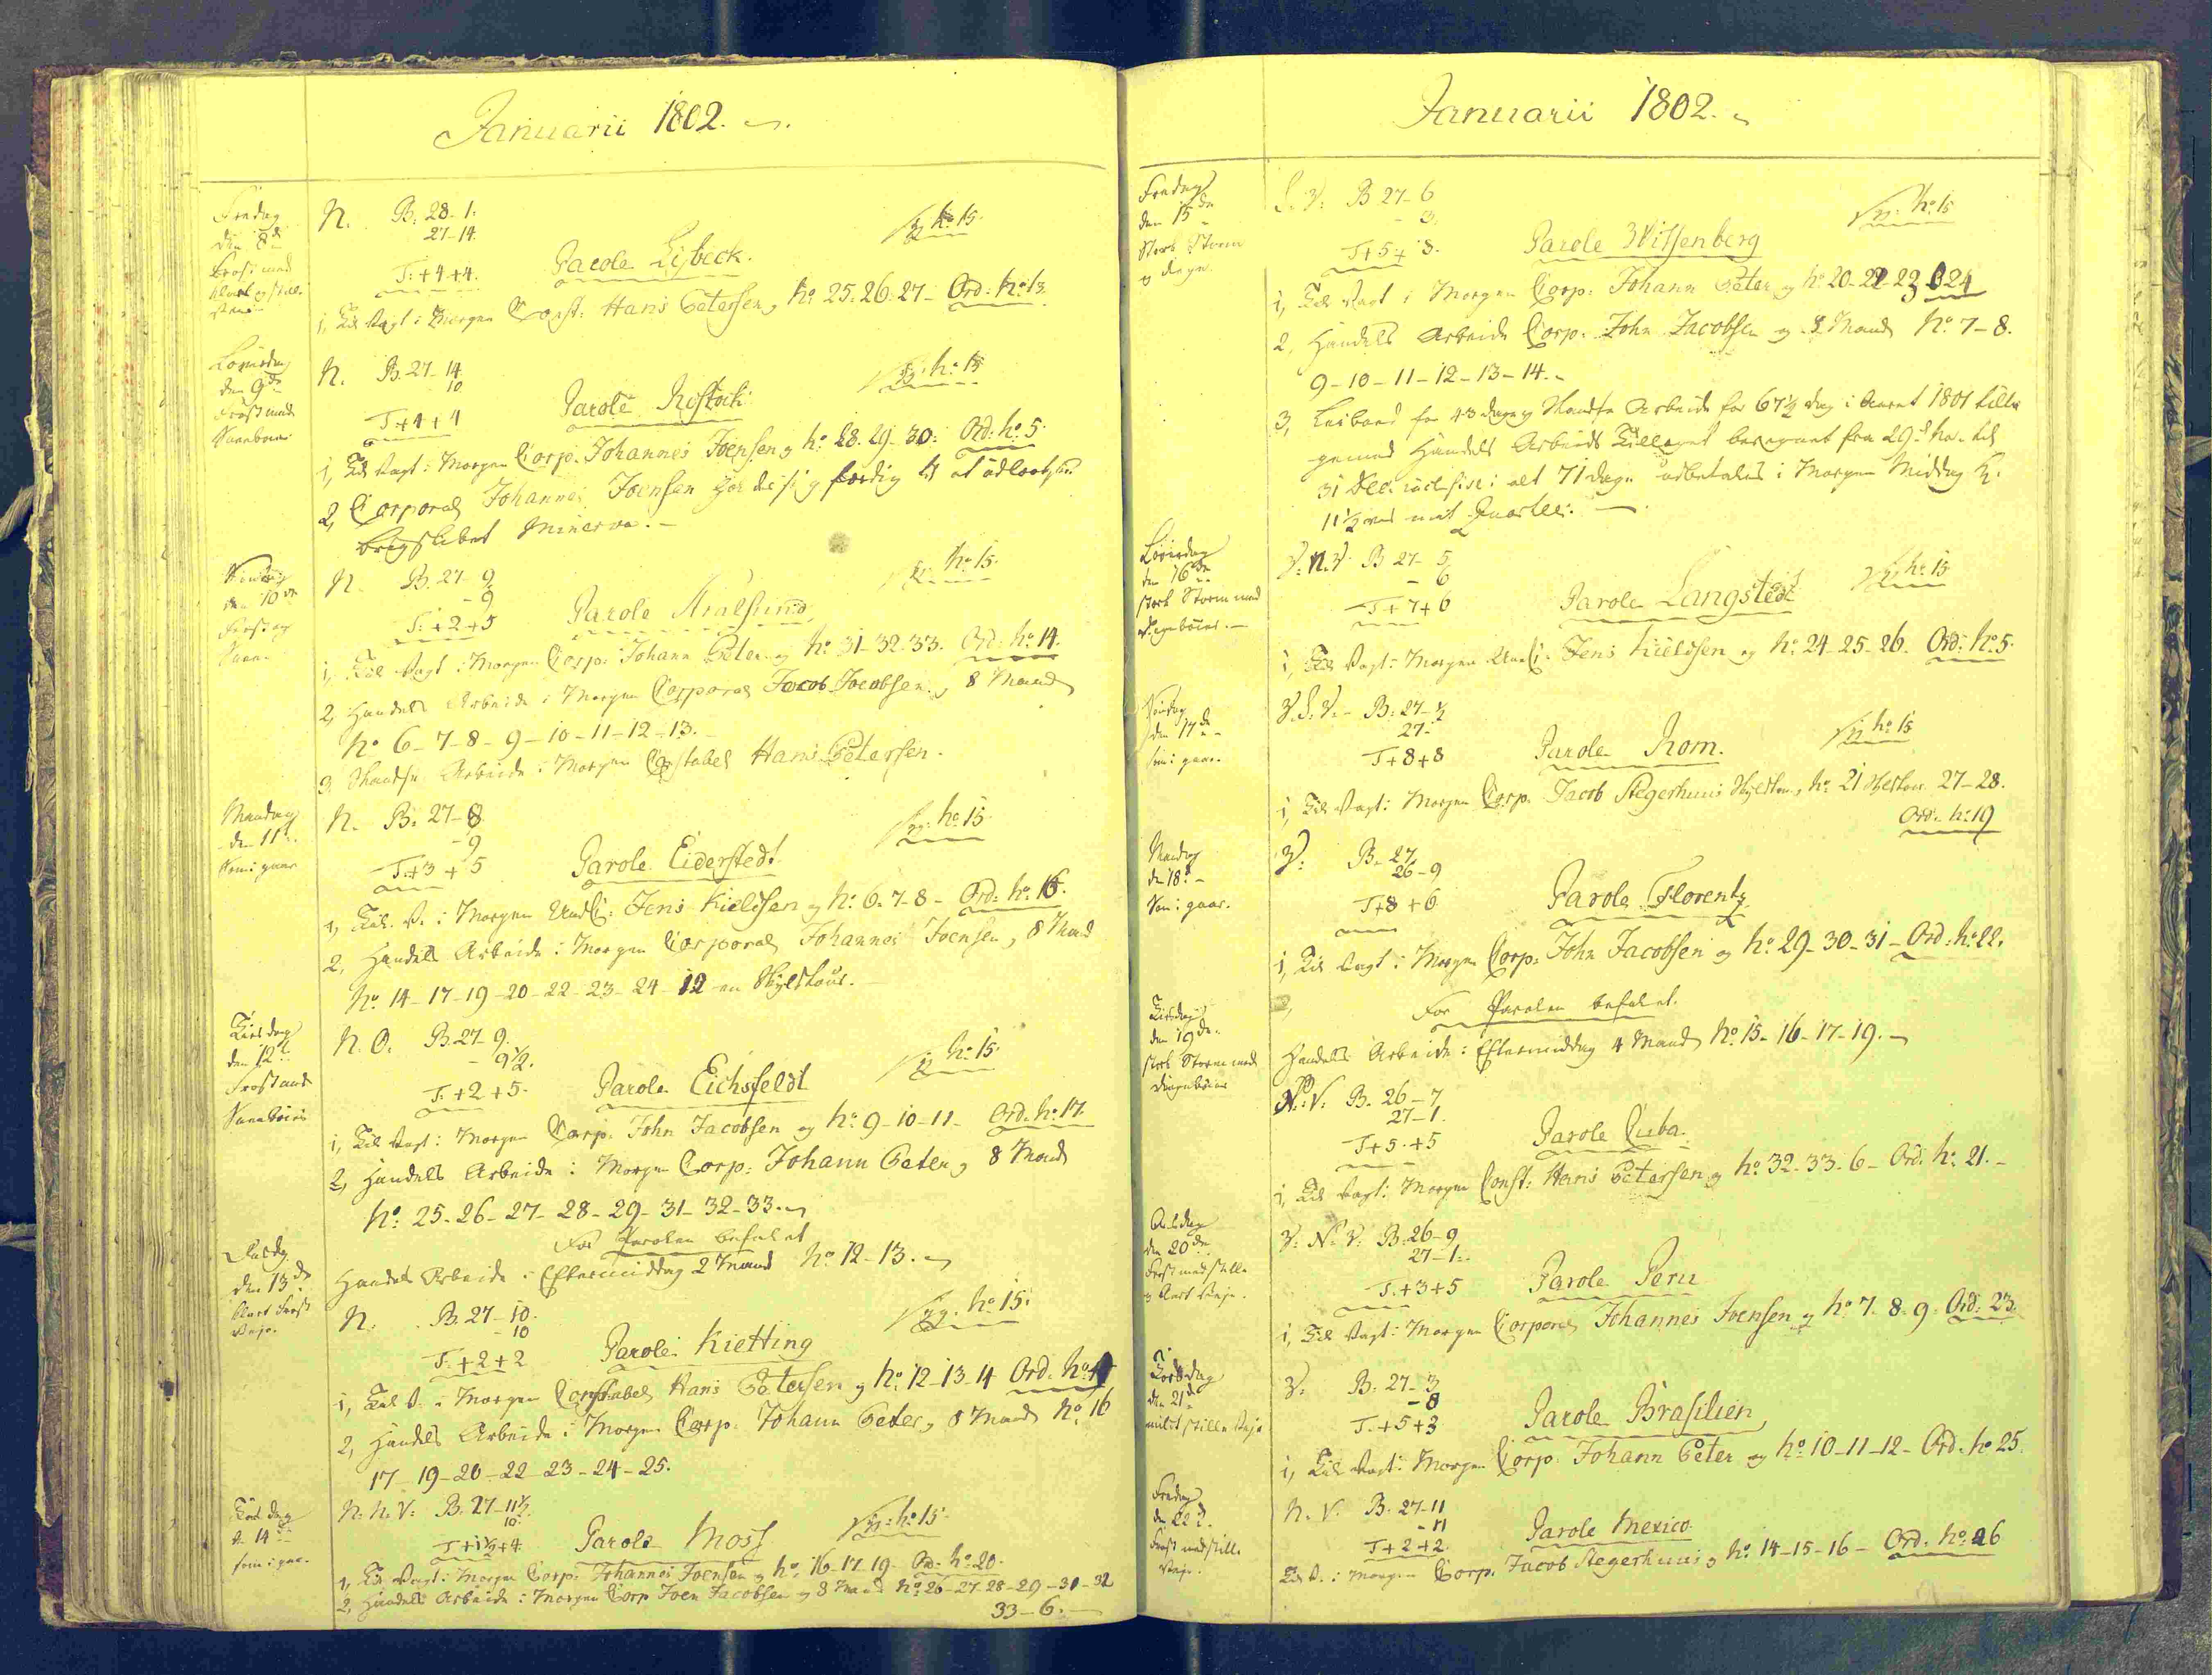 Januarii 1802.
Fredag
den 8de
Frost med
klart og stille
N. B. 28-1.
27-14.
No 15.
T. +4+4.
Parole Lybeck.
1, Til Vagt i Morgen Const: Hans Petersen og No 25. 26. 27- Ord: No 13
Løverdag
den 9de
Frost med
Sneeboier
N. B. 27-14
10
No 15
T. +4+4
Parole Rostock
1, Til Vagt i Morgen Corp. Johannes Joensen og No 28. 29. 30. Ord: No 5.
2, Corporal Johannes Joensen gjør sig færdig til at
brigskibet Minerva.
Søndag
den 10de
Frost og
Snee
N. B. 27-9
-9
No 15.
T: +2+5
Parole Stralsund
1, Til Vagt i Morgen Corp: Johann Peter og No 31-32-33. Ord: No 14.
2, Handels Arbeide i Morgen Corporal Jacob Jacobsen og 8 Mand
No 6-7-8-9-10-11-12-13.
3, Skandse Arbeide i Morgen Constabel Hans Petersen.
Mandag
den 11te
Som i gaar
N. B. 27-8
-9
No 15.
T. +3+5
Parole Eiderstedt
1, Til V. i Morgen Jens Kieldsen og No 6-7-8- Ord: No 16.
2, Handels Arbeide i Morgen Corporal Johannes Joensen, 8 Mand
No 14-17-19-20-22-23-24-12
Tiirsdag
den 12te
Frost med
Sneeboier
N. O. B. 27-9.
-9½.
No 15.
T. +2+5.
Parole Eichsfeldt
1, Til Vagt i Morgen Corp. John Jacobsen og No 9-10-11- Ord. No 17.
2, Handels Arbeide i Morgen Corp: Johann Peter og 8 Mand
No 25-26-27-28-29-31-32-33.
For Parolen befalet
Onsdag
den 13de
klart Frost
Vejr.
Handels Arbeide i Eftermiddag 2 Mand No 12-13.
N. B. 27-10.
-10
No 15.
T. +2+2
Parole Kietting
1, Til V. i Morgen Constabel Hans Petersen og No 12-13-14 Ord. No
2, Handels Arbeide i Morgen Corp. Johann Peter og 8 Mand No 16
17-19-20-22-23-24-25.
Torsdag
d. 14de
som i gaar.
N. N. V. B. 27-11½.
10.
No 15.
T +1½+4
Parole Moss
1, Til Vagt i Morgen Corp. Johannes Joensen og No 16-17-19- Ord. No 20.
2, Handels Arbeide i Morgen Corp Joen Jacobsen og 8 Mand No 26-27-28-29-31-32
33-6.
Januarii 1802.
Fredag
den 15de
Stærk Storm
og Regn.
S. V. B 27-6
-3.
No 15
T+5+3.
Parole Wittenberg
1, Til Vagt i Morgen Corp: Johann Peter og No 20-22-23 24
2, Handels Arbeide Corp. John Jacobsen og 8 Mand No 7-8.
9-10-11-12-13-14.
3, for 43 dage og Skandse Arbeide for 67½ dag i Aaret 1801
Handels Arbeids Tillæget beregnet fra 29de til
31 Dec: inclusive i alt 71 dage udbetales i Morgen Middag Kl.
11½
Løverdag
den 16de
stærk Storm med
Regnboier.
V. N. V. B 27-5
-6
No 15
T+7+6
Parole Langstedt
1, Til Vagt i Morgen Jens Kieldsen og No 24-25-26. Ord: No 5.
Søndag
den 17de
som i gaar.
V. S. V. B: 27-½
27.
No 15
T+8+8
Parole Rom.
1, Til Vagt i Morgen Corp. Jacob Stegerhuus No 21 27-28.
Ord. No 19
Mandag
den 18de
Som i gaar.
V. B. 27
26-9
T+8+6
Parole Florentz
1, Til Vagt i Morgen Corp: John Jacobsen og No 29-30-31- Ord: No 22.
Tiirsdag
den 19de
stærk Storm med
Regnboier
For Parolen befalet.
Handels Arbeide i Eftermiddag 4 Mand No 15-16-17-19.
N. V. B. 26-7
27-1.
T+5.+5
Parole Cuba.
1, Til Vagt i Morgen Const: Hans Petersen og No 32-33-6- Ord. No 21.
Onsdag
den 20de
Frost med stille
og klart Vejr.
V. N. V. B. 26-9
27-1.
T. +3+5
Parole Peru
1, Til Vagt i Morgen Corporal Johannes Joensen og No 7. 8. 9. Ord: 23.
Torsdag
den 21de
mildt stille Vejr
V. B. 27-3
-8
T. +5+3
Parole Brasilien
1, Til Vagt i Morgen Corp. Johann Peter og No 10-11-12- Ord. No 25.
Fredag
den 22de
Frost med stille
Vejr.
N. V. B. 27-11
-11
T+2+2.
Parole Mexico
Til V. i Morgen Corp. Jacob Stegerhuus og No 14-15-16- Ord. No 26